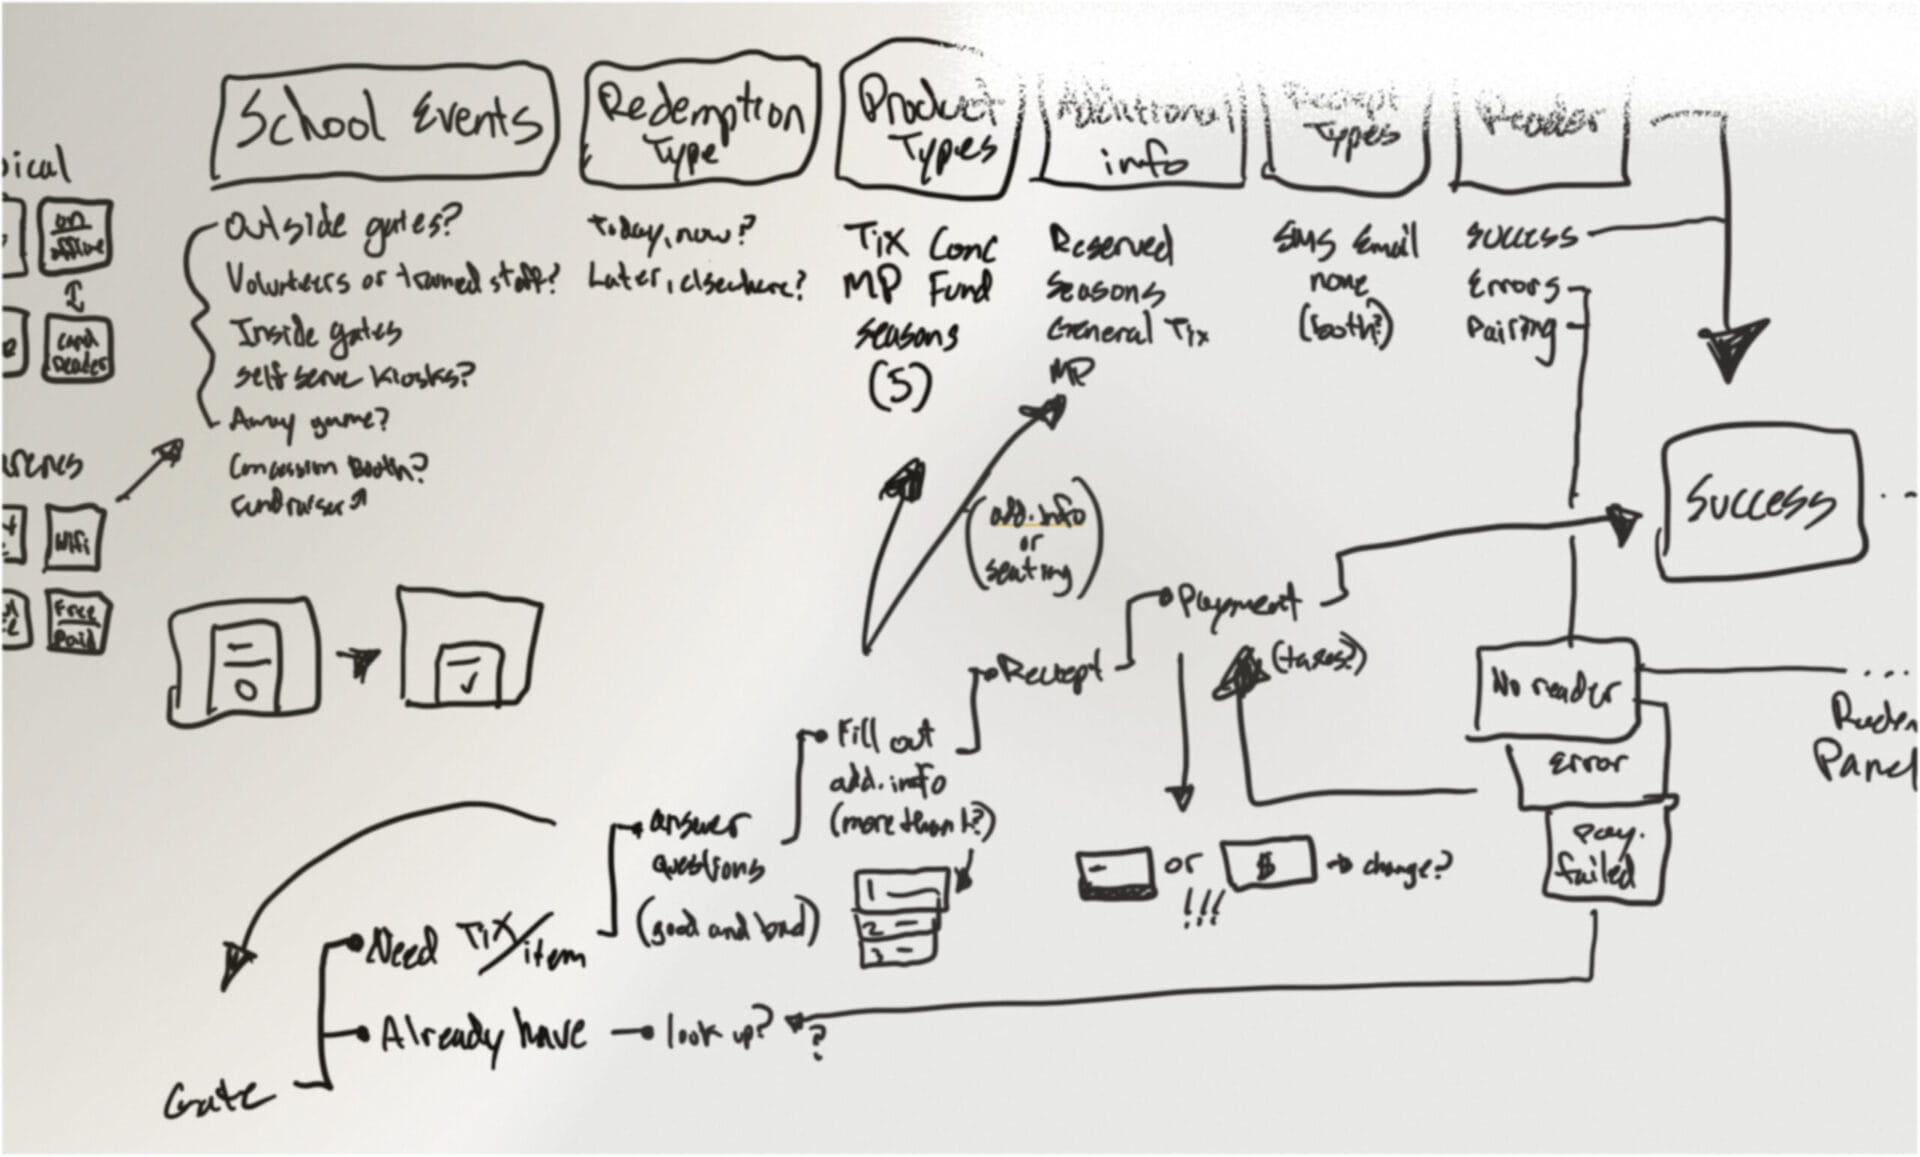 School Events
Redemption
Type
Product
Types
Additional
info
Receipt
Types
Reader
Outside gates?
Volunteers or trained staff?
Inside gates
Self serve kiosks?
Away game?
Concession Booth?
Fundraiser
Today, now?
Later, elsewhere?
Tix Conc
MP Fund
Seasons
(5)
Reserved
Seasons
General Tix
MP
SMS Email
none
(both?)
Success
Errors
Pairing
on
offline
card
reader
Wifi
Free
Paid
Success
add. info
or
seating
Payment
(taxes?)
Receipt
Fill out
add. info
(more than 1?)
1
2
3
answer
questions
(good and bad)
Need Tix/item
Already have
look up?
?
Gate
or
!!!
$
change?
No reader
Error
pay.
failed
Panel